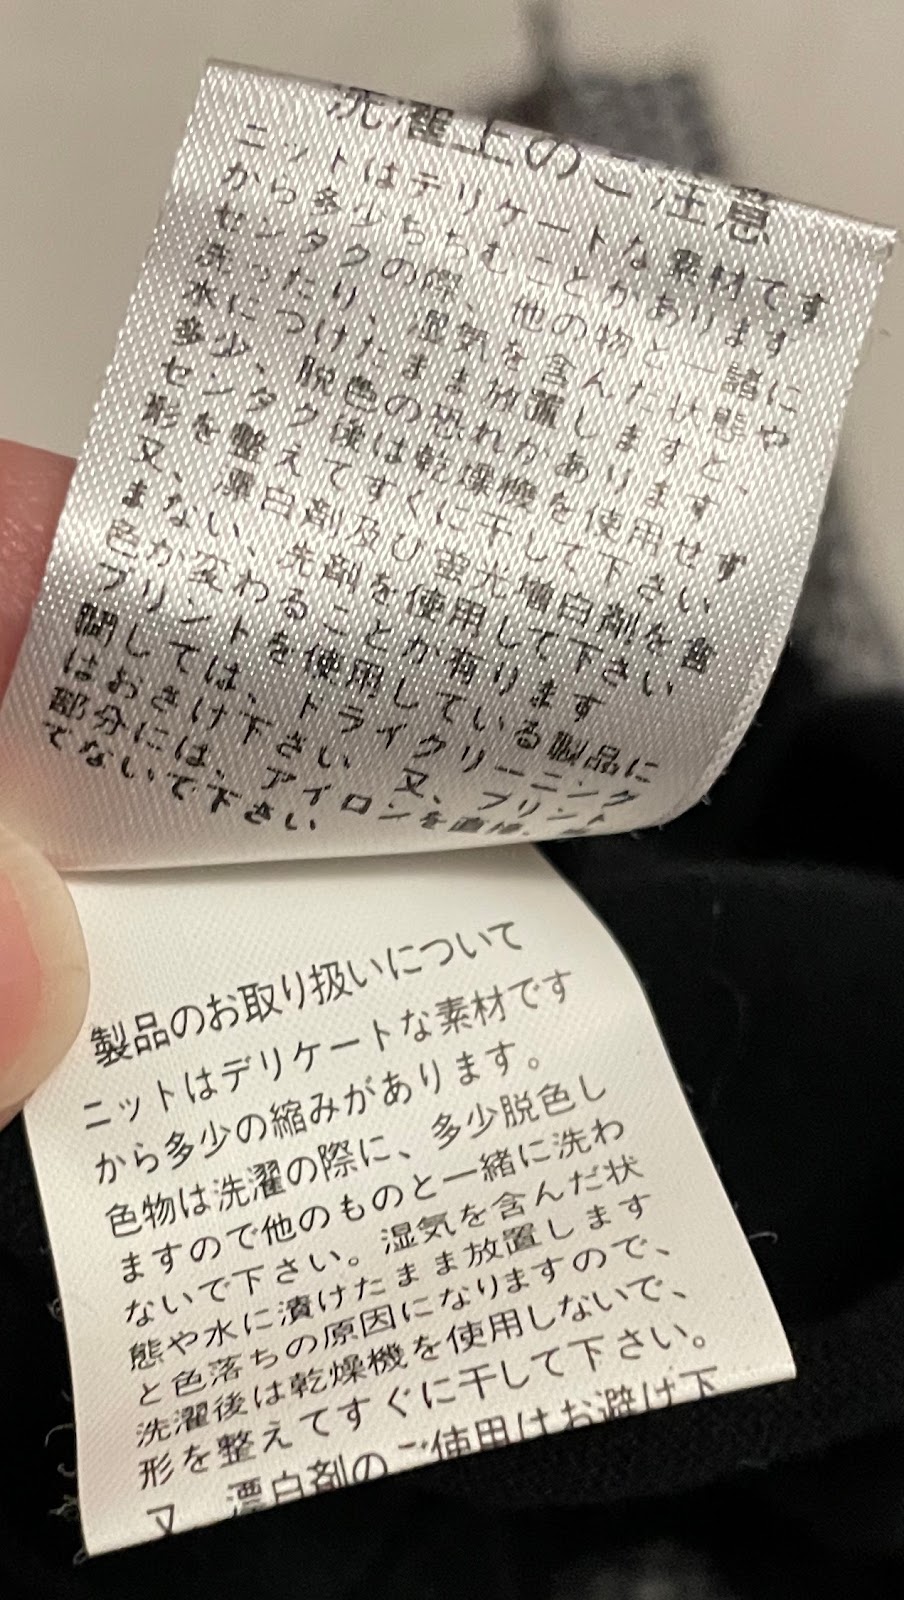 洗濯上のご注意
ニットはデリケートな素材です
から多少ちぢむことがあります
センタクの際、他の物と一諸に
洗ったり、湿気を含んだ状態や
水につけたまま放置しますと、
多少、脱色の恐れがあります
センタク後は乾燥機を使用せず
形を整えてすぐに干して下さい
又、漂白剤及び蛍光増白剤を含
まない、洗剤を使用して下さい
色が変わることが有ります
プリントを使用している製品に
関しては、ドライクリーニング
はおさけ下さい 又、プリント
部分には、アイロンを直接、
てないで下さい
製品のお取り扱いについて
ニットはデリケートな素材です
から多少の縮みがあります。
色物は洗濯の際に、多少脱色し
ますので他のものと一緒に洗わ
ないで下さい。湿気を含んだ状
態や水に漬けたまま放置します
と色落ちの原因になりますので、
洗濯後は乾燥機を使用しないで、
形を整えてすぐに干して下さい。
又、漂白剤のご使用はお避け下